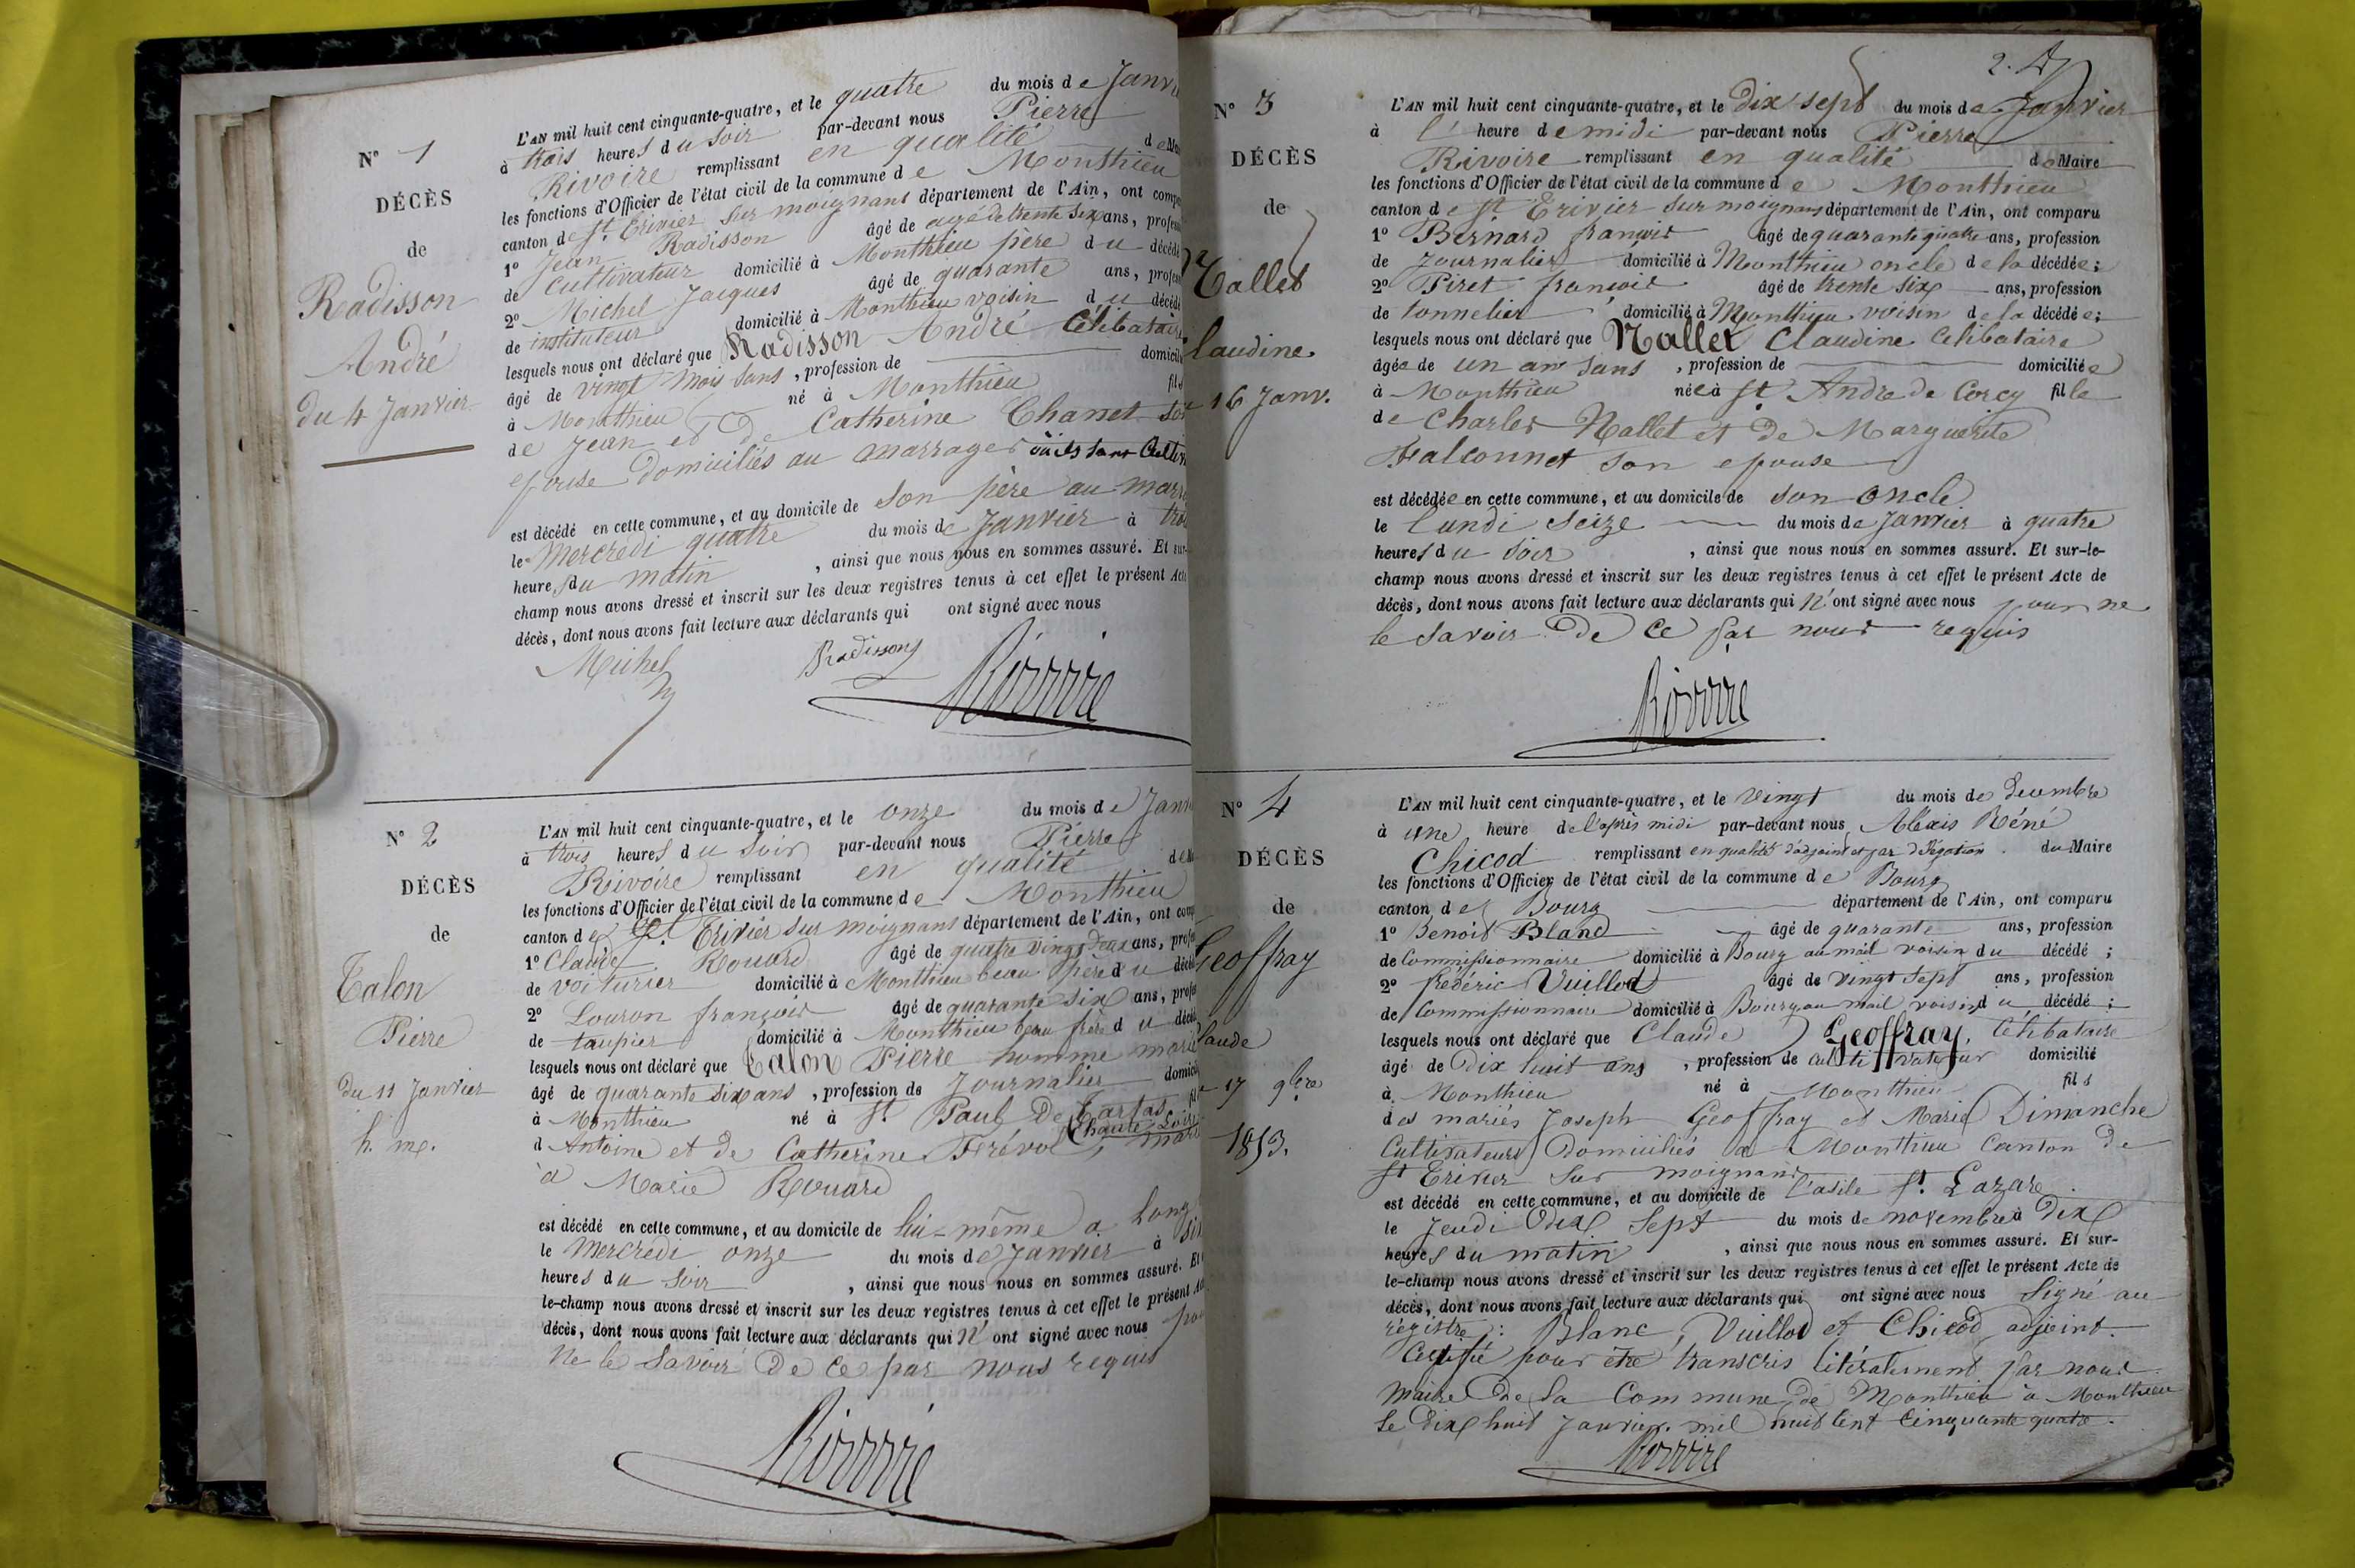 N° 1
DÉCÈS
de
Radisson
André
du 4 Janvier
L'AN mil huit cent cinquante-quatre, et le quatre du mois de Janv
à trois heures du soir par-devant nous Pierre
Rivoire remplissant en qualité de
les fonctions d'Officier de l'état civil de la commune de Monthieu
canton de St. Trivier sur moignans département de l'Ain, ont comp
1° Jean Radisson âgé de agé de trente six ans, profes
de cultivateur domicilié à Monthieu père du décédé
2° Michel Jacques âgé de quarante ans, profes
de instituteur domicilié à Monthieu voisin du décédé
lesquels nous ont déclaré que Radisson André Célibataire
âgé de vingt mois sans, profession de domicil
à Monthieu né à Monthieu fils
de Jean et de Catherine Chanet so
epouse domiciliés au marrage où ils sont Cultiv
est décédé en cette commune, et au domicile de son père au marr
le Mercredi quatre du mois de Janvier à tro
heures du matin, ainsi que nous nous en sommes assuré. Et sur-
champ nous avons dressé et inscrit sur les deux registres tenus à cet effet le présent Acte
décès, dont nous avons fait lecture aux déclarants qui ont signé avec nous
Michel Radisson Rivoire
N° 2
DÉCÈS
de
Talon
Pierre
du 11 Janvier
h. me.
L'AN mil huit cent cinquante-quatre, et le onze du mois de Janv
à trois heures du soir par-devant nous Pierre
Rivoire remplissant en qualité de
les fonctions d'Officier de l'état civil de la commune de Monthieu
canton de St. Trivier sur moignans département de l'Ain, ont comp
1° Claude Rouard âgé de quatre vingt deux ans, profes
de voiturier domicilié à Monthieu beau père du décéd
2° Louron françois âgé de quarante six ans, profes
de taupier domicilié à Monthieu beau frère du décéd
lesquels nous ont déclaré que Talon Pierre homme marié
âgé de quarante six ans, profession de Journalier domici
à Monthieu né à St Paul de Tartas fil
(haute Loire
d Antoine et de Catherine Frévol, mari
à Marie Rouard
est décédé en cette commune, et au domicile de lui-même a Long
le Mercredi onze du mois de Janvier à six
heures du soir, ainsi que nous nous en sommes assuré. Et
le-champ nous avons dressé et inscrit sur les deux registres tenus à cet effet le présent Ac
décès, dont nous avons fait lecture aux déclarants qui n'ont signé avec nous pou
ne le savoir de ce par nous requis
Rivoire
2.
N° 3
DÉCÈS
de
Nallet
laudine.
16 Janv.
L'AN mil huit cent cinquante-quatre, et le dix sept du mois de Janvier
à l' heure de midi par-devant nous Pierre
Rivoire remplissant en qualité de Maire
les fonctions d'Officier de l'état civil de la commune de Monthieu
canton de St Trivier sur moignans département de l'Ain, ont comparu
1° Bernard françois âgé de quarante quatre ans, profession
de Journalier domicilié à Monthieu oncle de la décédée;
2° Piret françois âgé de trente six ans, profession
de tonnelier domicilié à Monthieu voisin de la décédée;
lesquels nous ont déclaré que Nallet Claudine Célibataire
âgée de un an sans, profession de domiciliée
à Monthieu née à St Andre de Corcy fille
de Charles Nallet et de Marguerite
Falconnet son epouse
est décédée en cette commune, et au domicile de son oncle
le lundi seize du mois de Janvier à quatre
heures du soir, ainsi que nous nous en sommes assuré. Et sur-le-
champ nous avons dressé et inscrit sur les deux registres tenus à cet effet le présent Acte de
décès, dont nous avons fait lecture aux déclarants qui n'ont signé avec nous pour ne
le savoir de ce par nous requis
Rivoire
N° 4
DÉCÈS
de
Geoffray
laude
17 9bre
1853.
L'AN mil huit cent cinquante-quatre, et le vingt du mois de decembre
à une heure de l'après midi par-devant nous Alexis Réné
Chicod remplissant en qualité d'adjoint et par délégation du Maire
les fonctions d'Officier de l'état civil de la commune de Bourg
canton de Bourg département de l'Ain, ont comparu
1° Benoit Blanc âgé de quarante ans, profession
de Commissionnaire domicilié à Bourg au mail voisin du décédé;
2° frédéric Vuillod âgé de vingt sept ans, profession
de Commissionnaire domicilié à Bourg au mail voisin du décédé;
lesquels nous ont déclaré que Claude Geoffray, Célibataire
âgé de Dix huit ans, profession de cultivateur domicilié
à Monthieu né à Monthieu fils
des mariés Joseph Geoffray et Marie Dimanche
Cultivateurs Domiciliés à Monthieu Canton de
St Trivier sur moignans
est décédé en cette commune, et au domicile de l'asile St. Lazare
le Jeudi dix sept du mois de novembre à dix
heures du matin, ainsi que nous nous en sommes assuré. Et sur-
le-champ nous avons dressé et inscrit sur les deux registres tenus à cet effet le présent Acte de
décès, dont nous avons fait lecture aux déclarants qui ont signé avec nous Signé au
régistre: Blanc, Vuillod et Chicod adjoint.
Certifié pour être transcris litéralement par nous
Maire de la Commune de Monthieu à Monthieu
le dix huit Janvier mil huit cent Cinquante quatre.
Rivoire